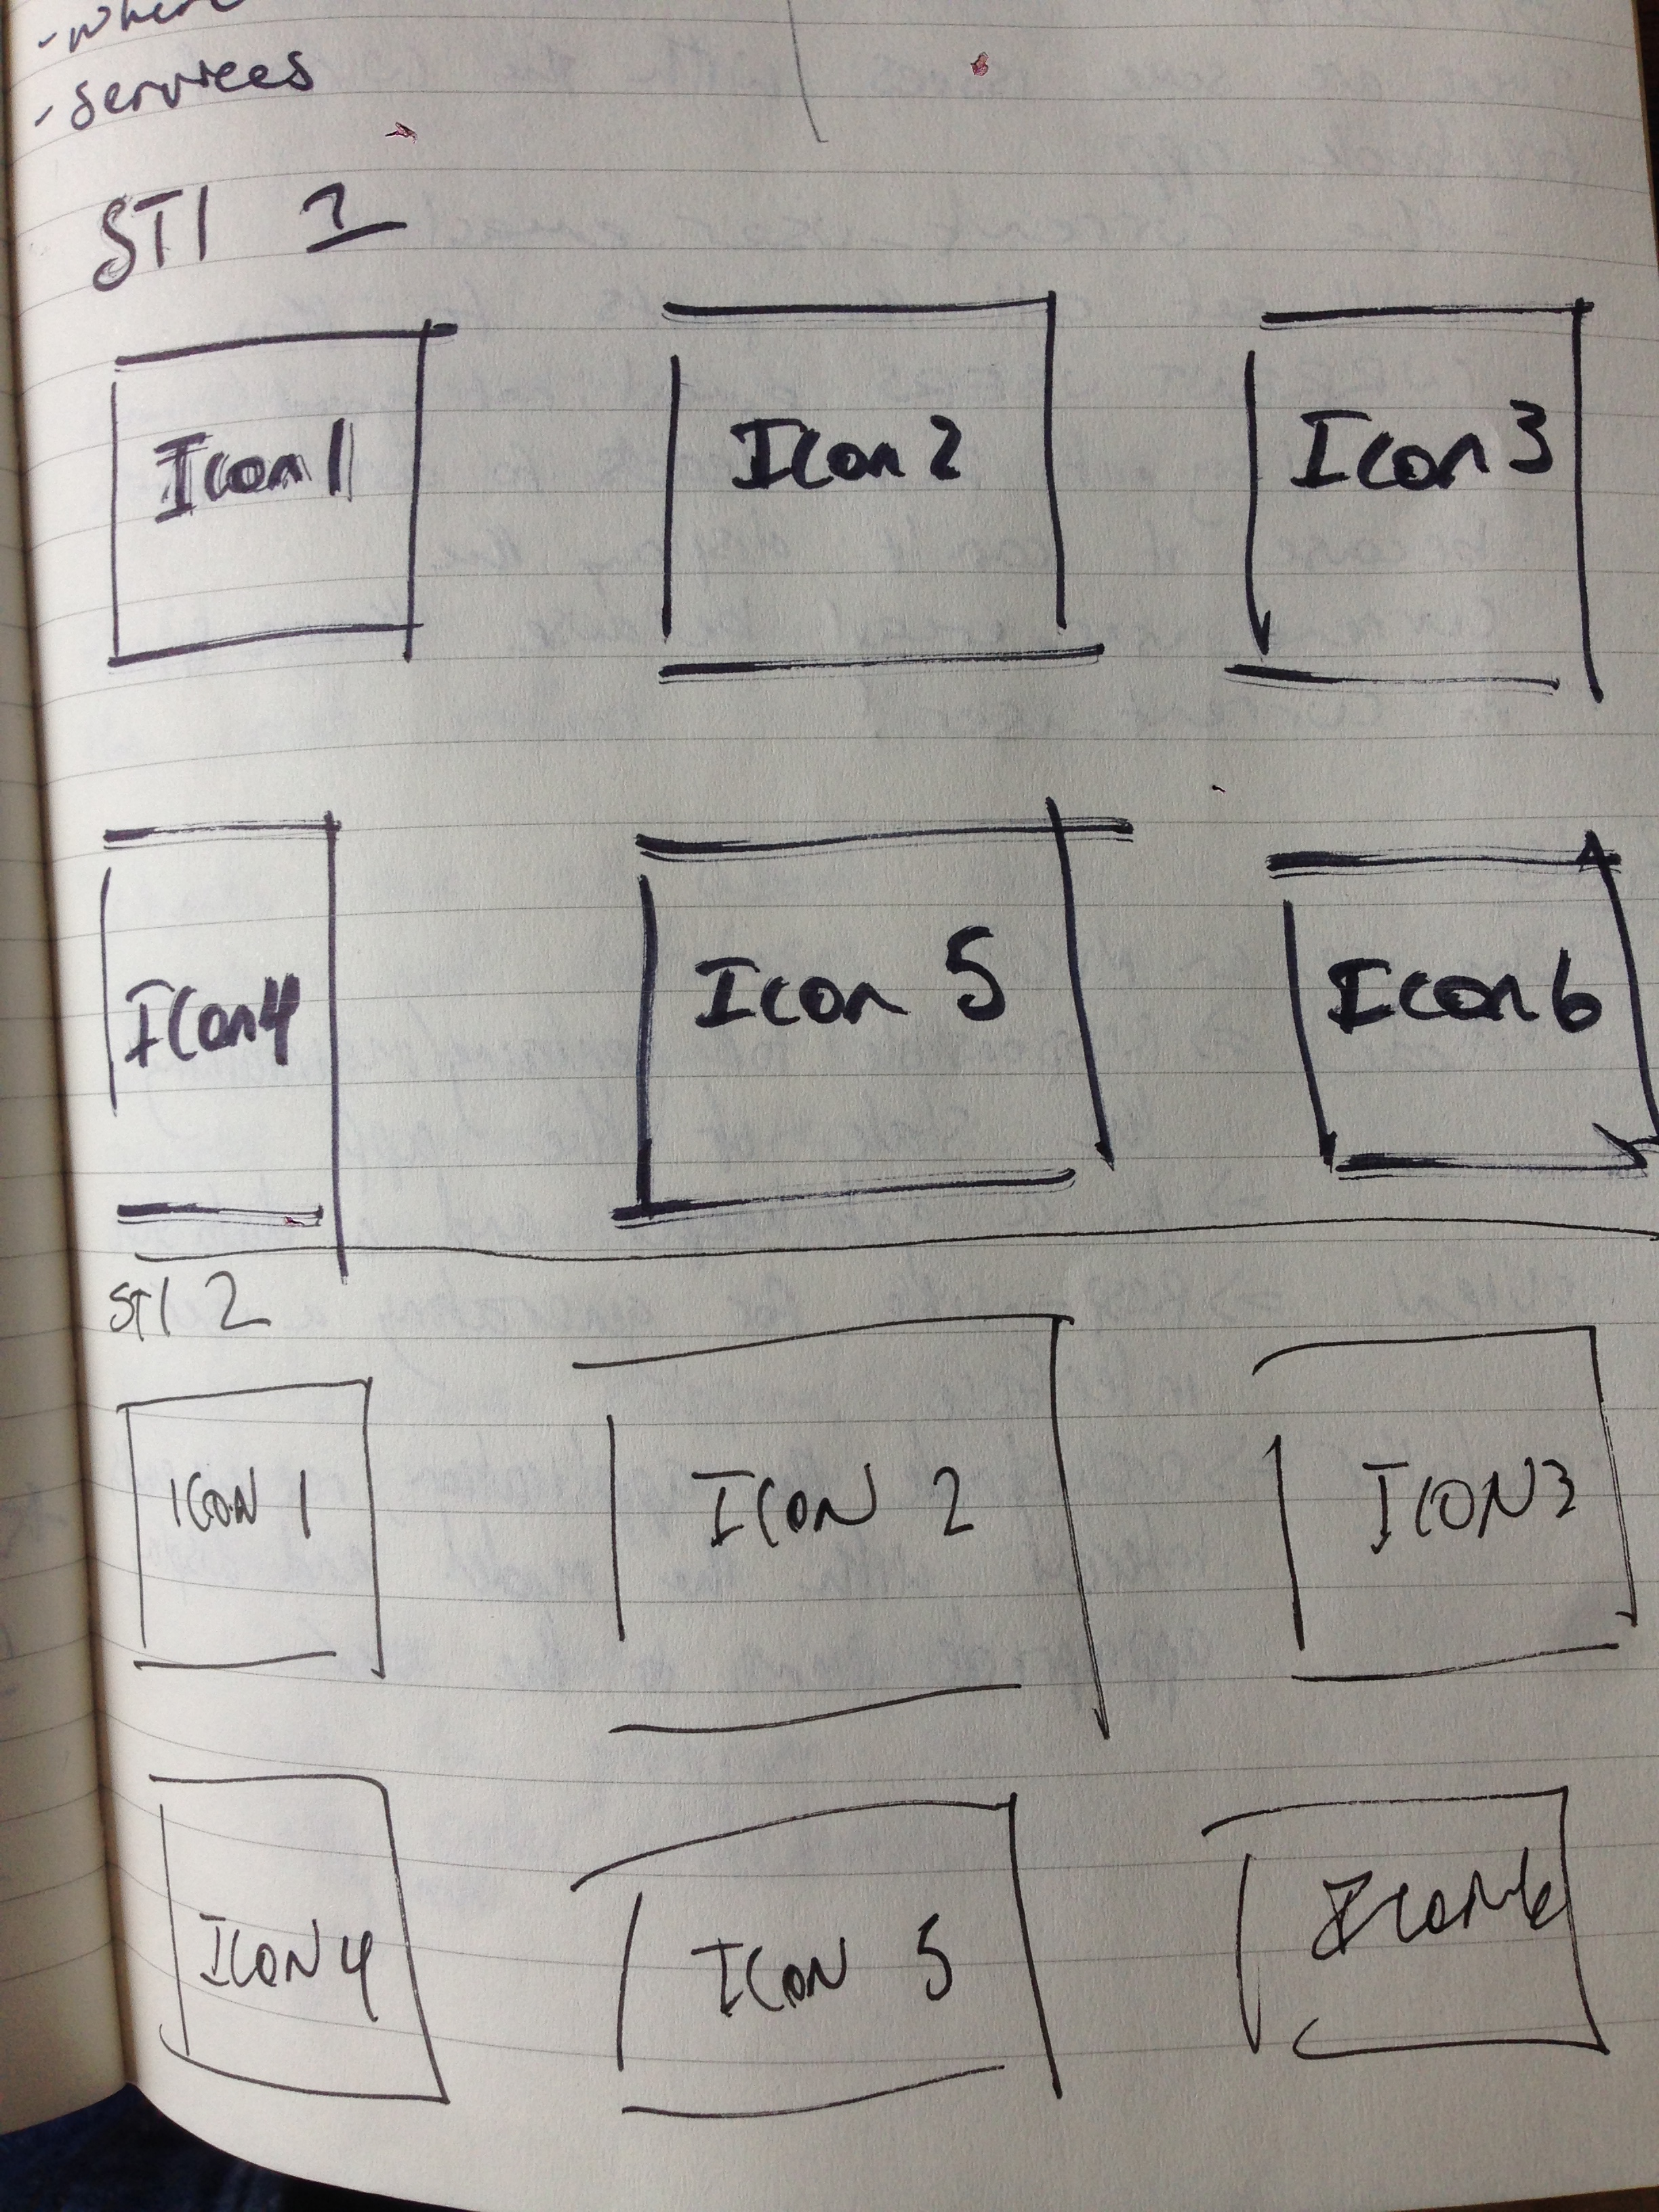 - where
- services
STI 1
Icon 1
Icon 2
Icon 3
Icon 4
Icon 5
Icon 6
STI 2
ICON 1
ICON 2
ICON 3
ICON 4
ICON 5
Icon 6